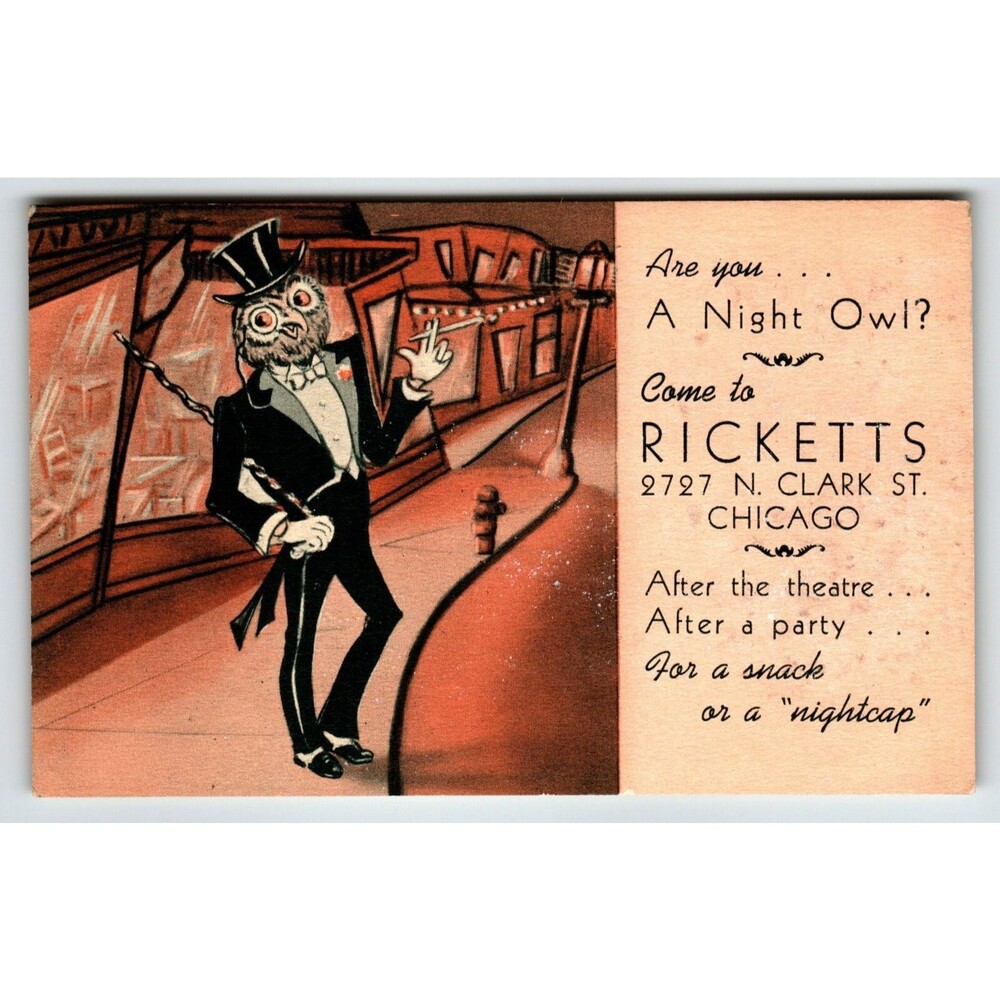 Are you . . .
A Night Owl?
Come to
RICKETTS
2727 N. CLARK ST.
CHICAGO
After the theatre . . .
After a party . . .
For a snack
or a "nightcap"